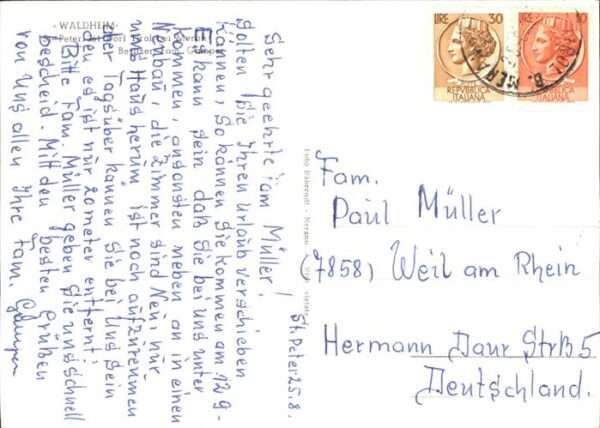 "WALDHEIM"
St. Peter bei Dorf Tirol ob Meran
Besitzer Fam. Gamper
St. Peter 25.8.
Sehr geehrte Fam Müller!
Solten Sie Ihren Urlaub verschieben
können, so können Sie kommen am 12 9-
Es kann sein daß Sie bei uns unter
kommen, ansonsten neben an in einen
Neubau, die Zimmer sind Neu, nur
ums Haus herum ist noch aufzuräumen
aber Tagsüber kannen Sie bei Uns sein
den es ist nur 20 meter entfernt!
Bitte Fam. Müller geben Sie uns schnell
bescheid. Mit den besten Grüßen
von Uns allen Ihre Fam. Gamper
LIRE 30
REPVBBLICA
ITALIANA
LIRE
REPVBBLICA
ITALIANA
Fam.
Paul Müller
(7858) Weil am Rhein
Hermann Daur Strß 5
Deutschland.